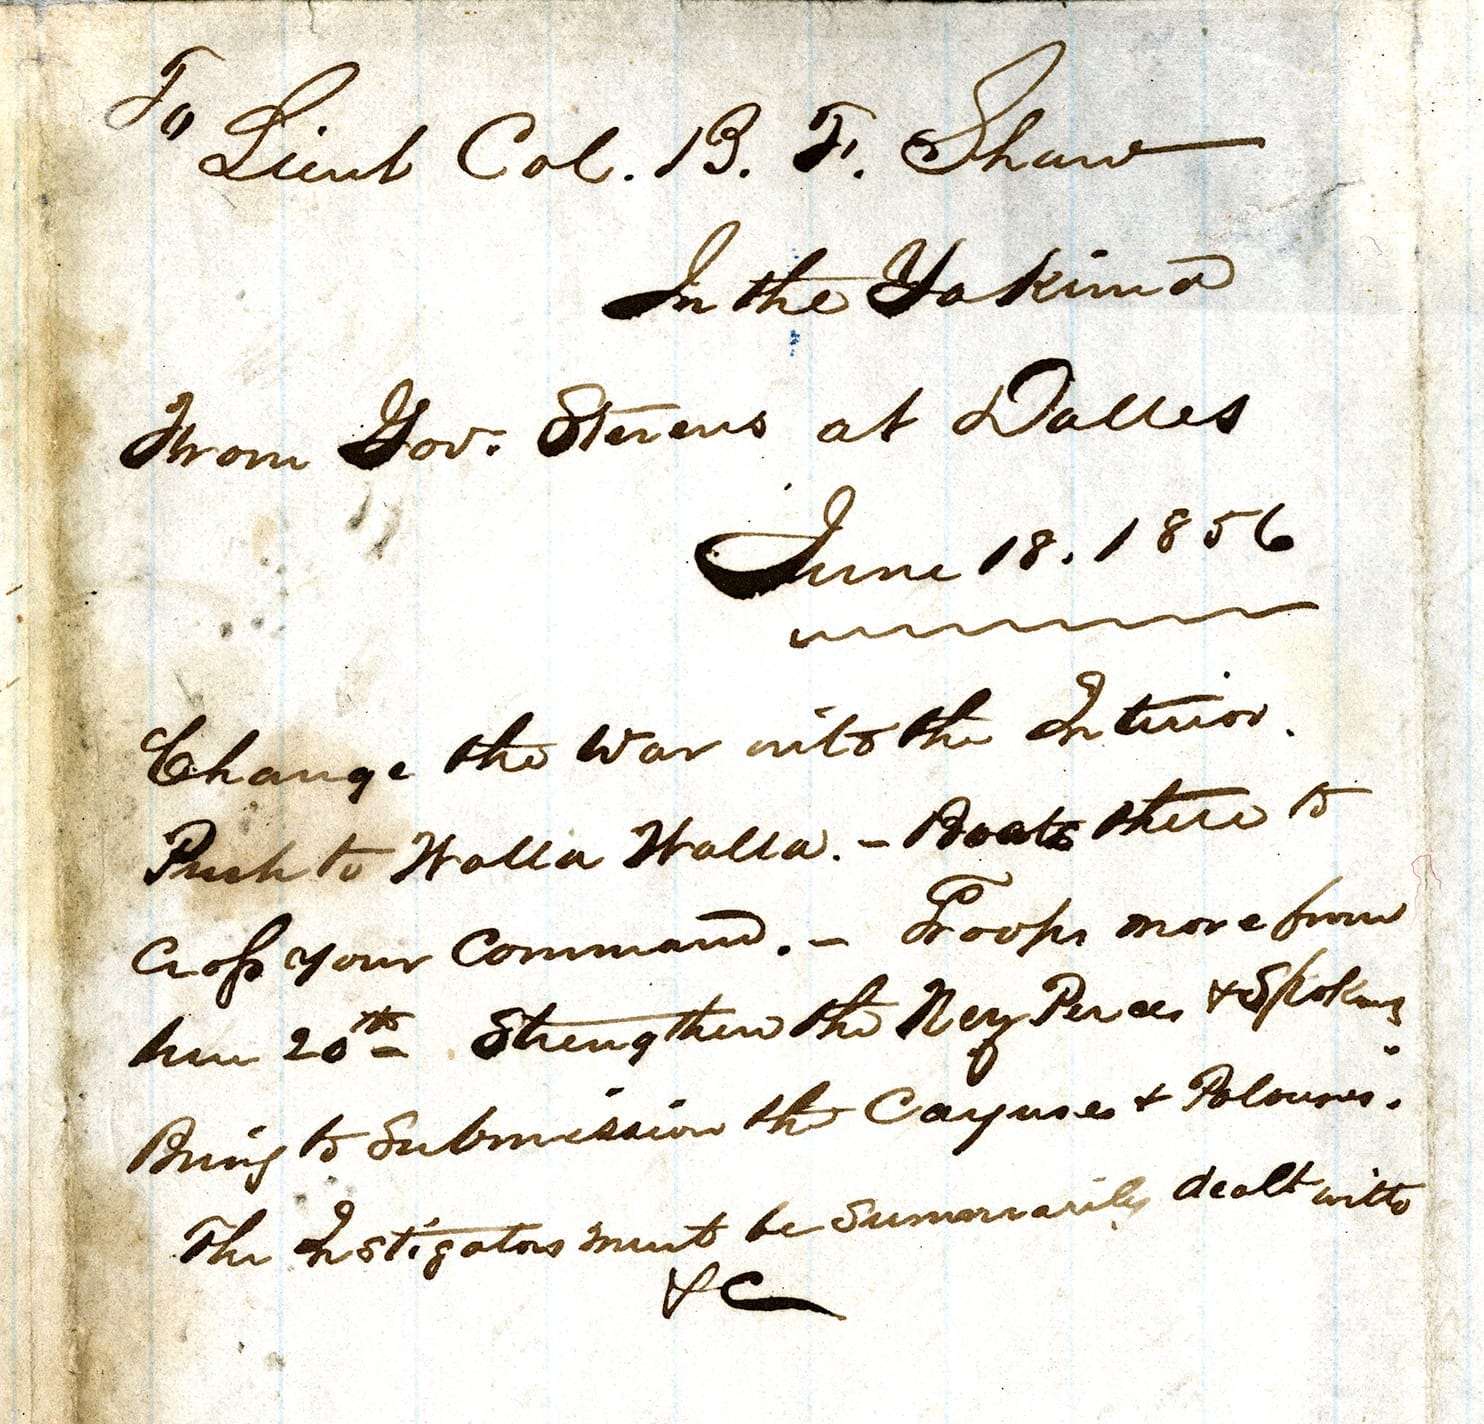 To Lieut Col. B. F. Shaw
In the Yakima
From Gov. Stevens at Dalles
June 18. 1856
Change the War into the Interior.
Push to Walla Walla. – Boats there to
cross your Command. – Troops move from
here 20th Strengthen the Nez Perces & Spokans
Bring to Submission the Cayuses & Palouses.
The Instigators must be Summarily dealt with
&C